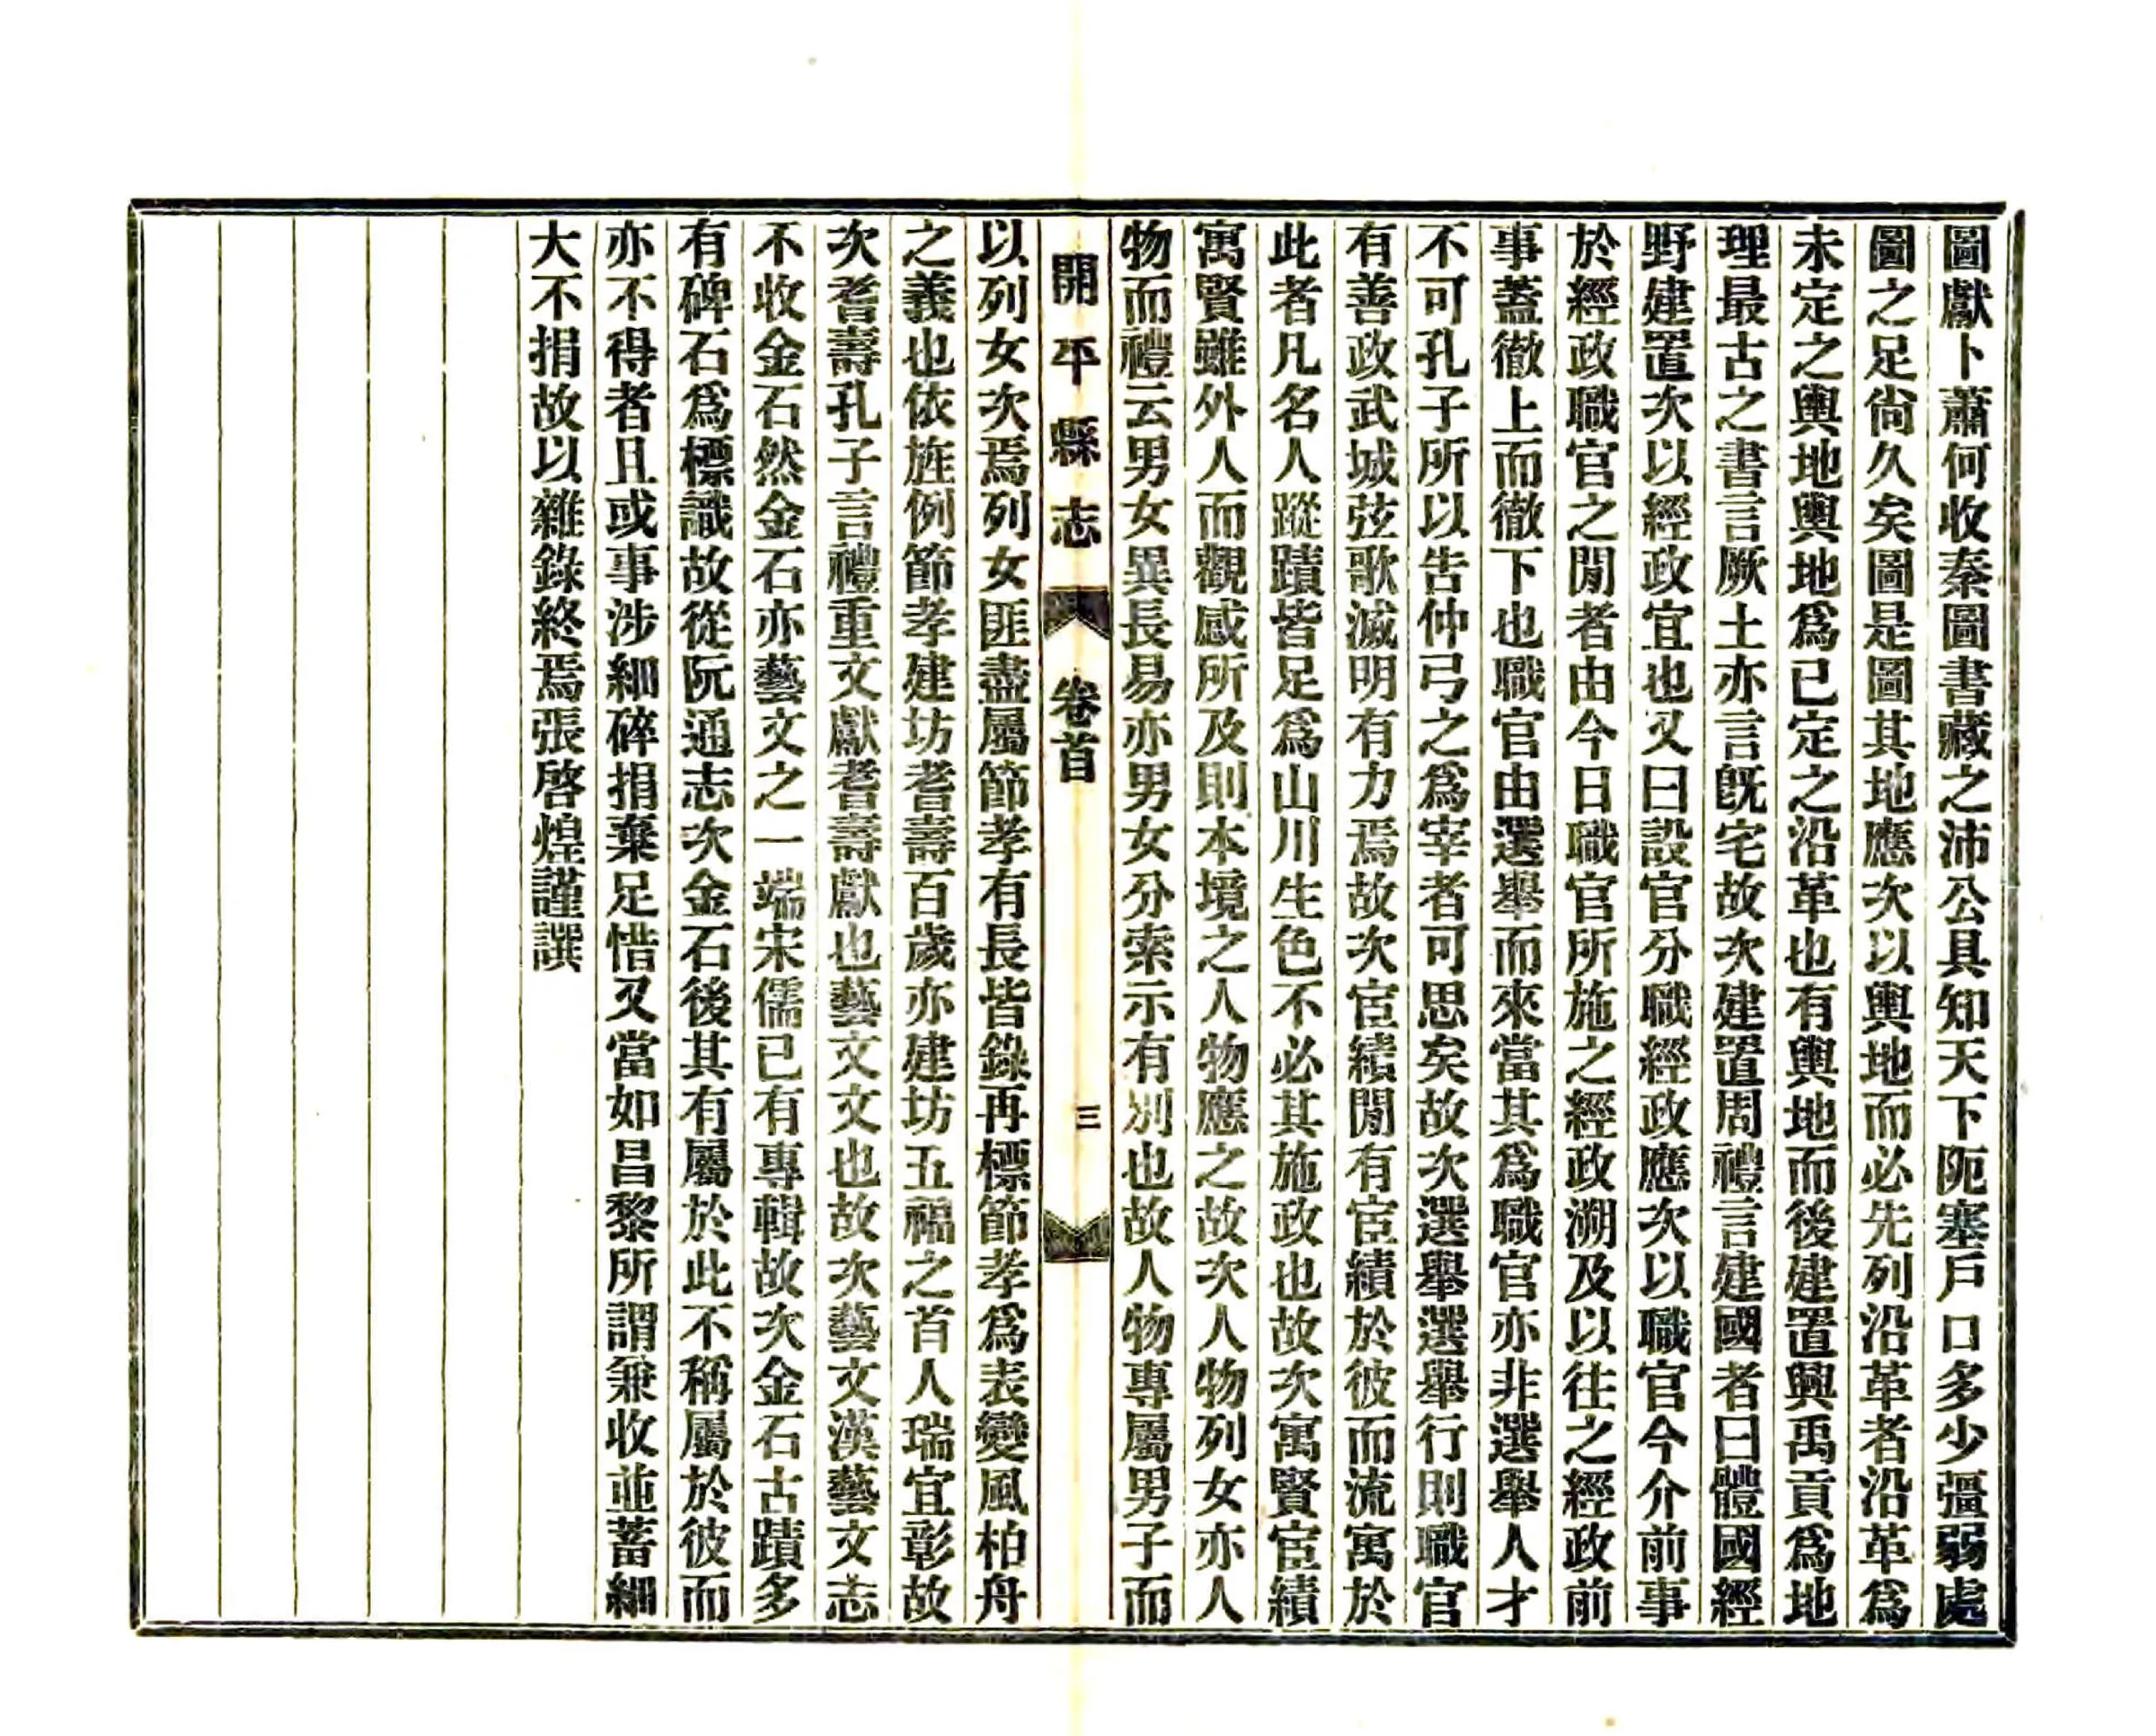 圖獻卜蕭何收秦圖書藏之沛公具知天下阨塞戶口多少彊弱處
圖之足尙久矣圖是圖其地應次以輿地而必先列沿革者沿革爲
未定之輿地輿地爲已定之沿革也有輿地而後建置興禹貢爲地
理最古之書言厥土亦言旣宅故次建置周禮言建國者曰體國經
野建置次以經政宜也又曰設官分職經政應次以職官今介前事
於經政職官之閒者由今日職官所施之經政溯及以往之經政前
事蓋徹上而徹下也職官由選舉而來當其爲職官亦非選舉人才
不可孔子所以告仲弓之爲宰者可思矣故次選舉選舉行則職官
有善政武城弦歌滅明有力焉故次宦績閒有宦績於彼而流寓於
此者凡名人蹤蹟皆足爲山川生色不必其施政也故次寓賢宦績
寓賢雖外人而觀感所及則本境之人物應之故次人物列女亦人
物而禮云男女異長易亦男女分索示有別也故人物專屬男子而
開平縣志 卷首 三
以列女次焉列女匪盡屬節孝有長皆錄再標節孝爲表變風柏舟
之義也依旌例節孝建坊耆壽百歲亦建坊五福之首人瑞宜彰故
次耆壽孔子言禮重文獻耆壽獻也藝文文也故次藝文漢藝文志
不收金石然金石亦藝文之一端宋儒已有專輯故次金石古蹟多
有碑石爲標識故從阮通志次金石後其有屬於此不稱屬於彼而
亦不得者且或事涉細碎捐棄足惜又當如昌黎所謂兼收並蓄細
大不捐故以雜錄終焉張啓煌謹譔